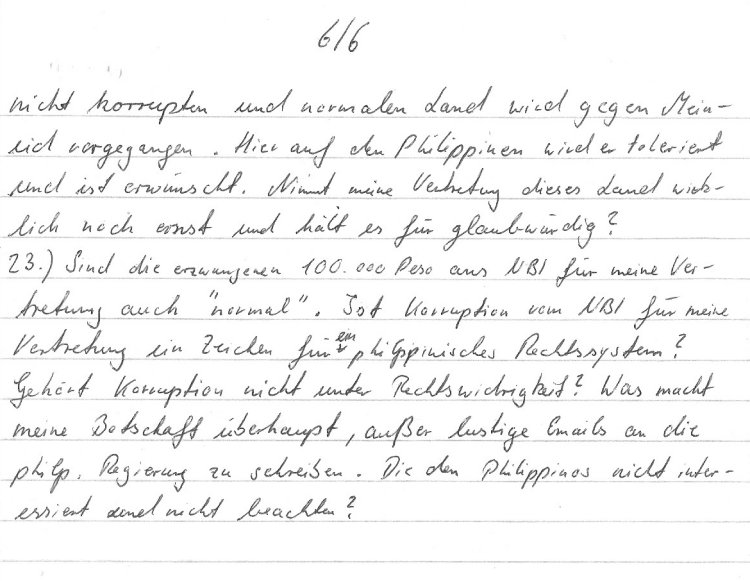 6/6
nicht korrupten und normalen Land wird gegen Mein-
eid vorgegangen. Hier auf den Philippinen wird er toleriert
und ist erwünscht. Nimmt meine Vertretung dieses Land wirk-
lich noch ernst und hält es für glaubwürdig?
23.) Sind die erzwungenen 100.000 Peso ans NBI für meine Ver-
tretung auch "normal". Ist Korruption vom NBI für meine
Vertretung ein Zeichen für ein philippinisches Rechtssystem?
Gehört Korruption nicht unter Rechtswidrigkeit? Was macht
meine Botschaft überhaupt, außer lustige Emails an die
philp. Regierung zu schreiben. Die den Philippinos nicht inter-
essiert und nicht beachten?